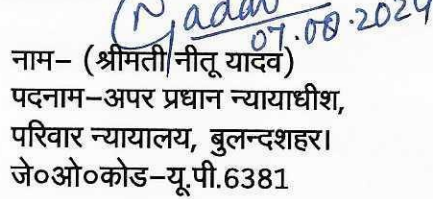 07.08.2024
नाम– (श्रीमती नीतू यादव)
पदनाम–अपर प्रधान न्यायाधीश,
परिवार न्यायालय, बुलन्दशहर।
जे०ओ०कोड–यू.पी.6381